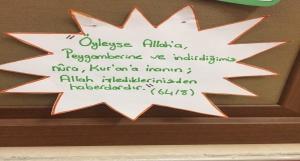 " Öyleyse Allah'a,
Peygamberine ve indirdiğimiz
nûra, Kur'an'a inanın ;
Allah işlediklerinizden
haberdardır." (64/8)